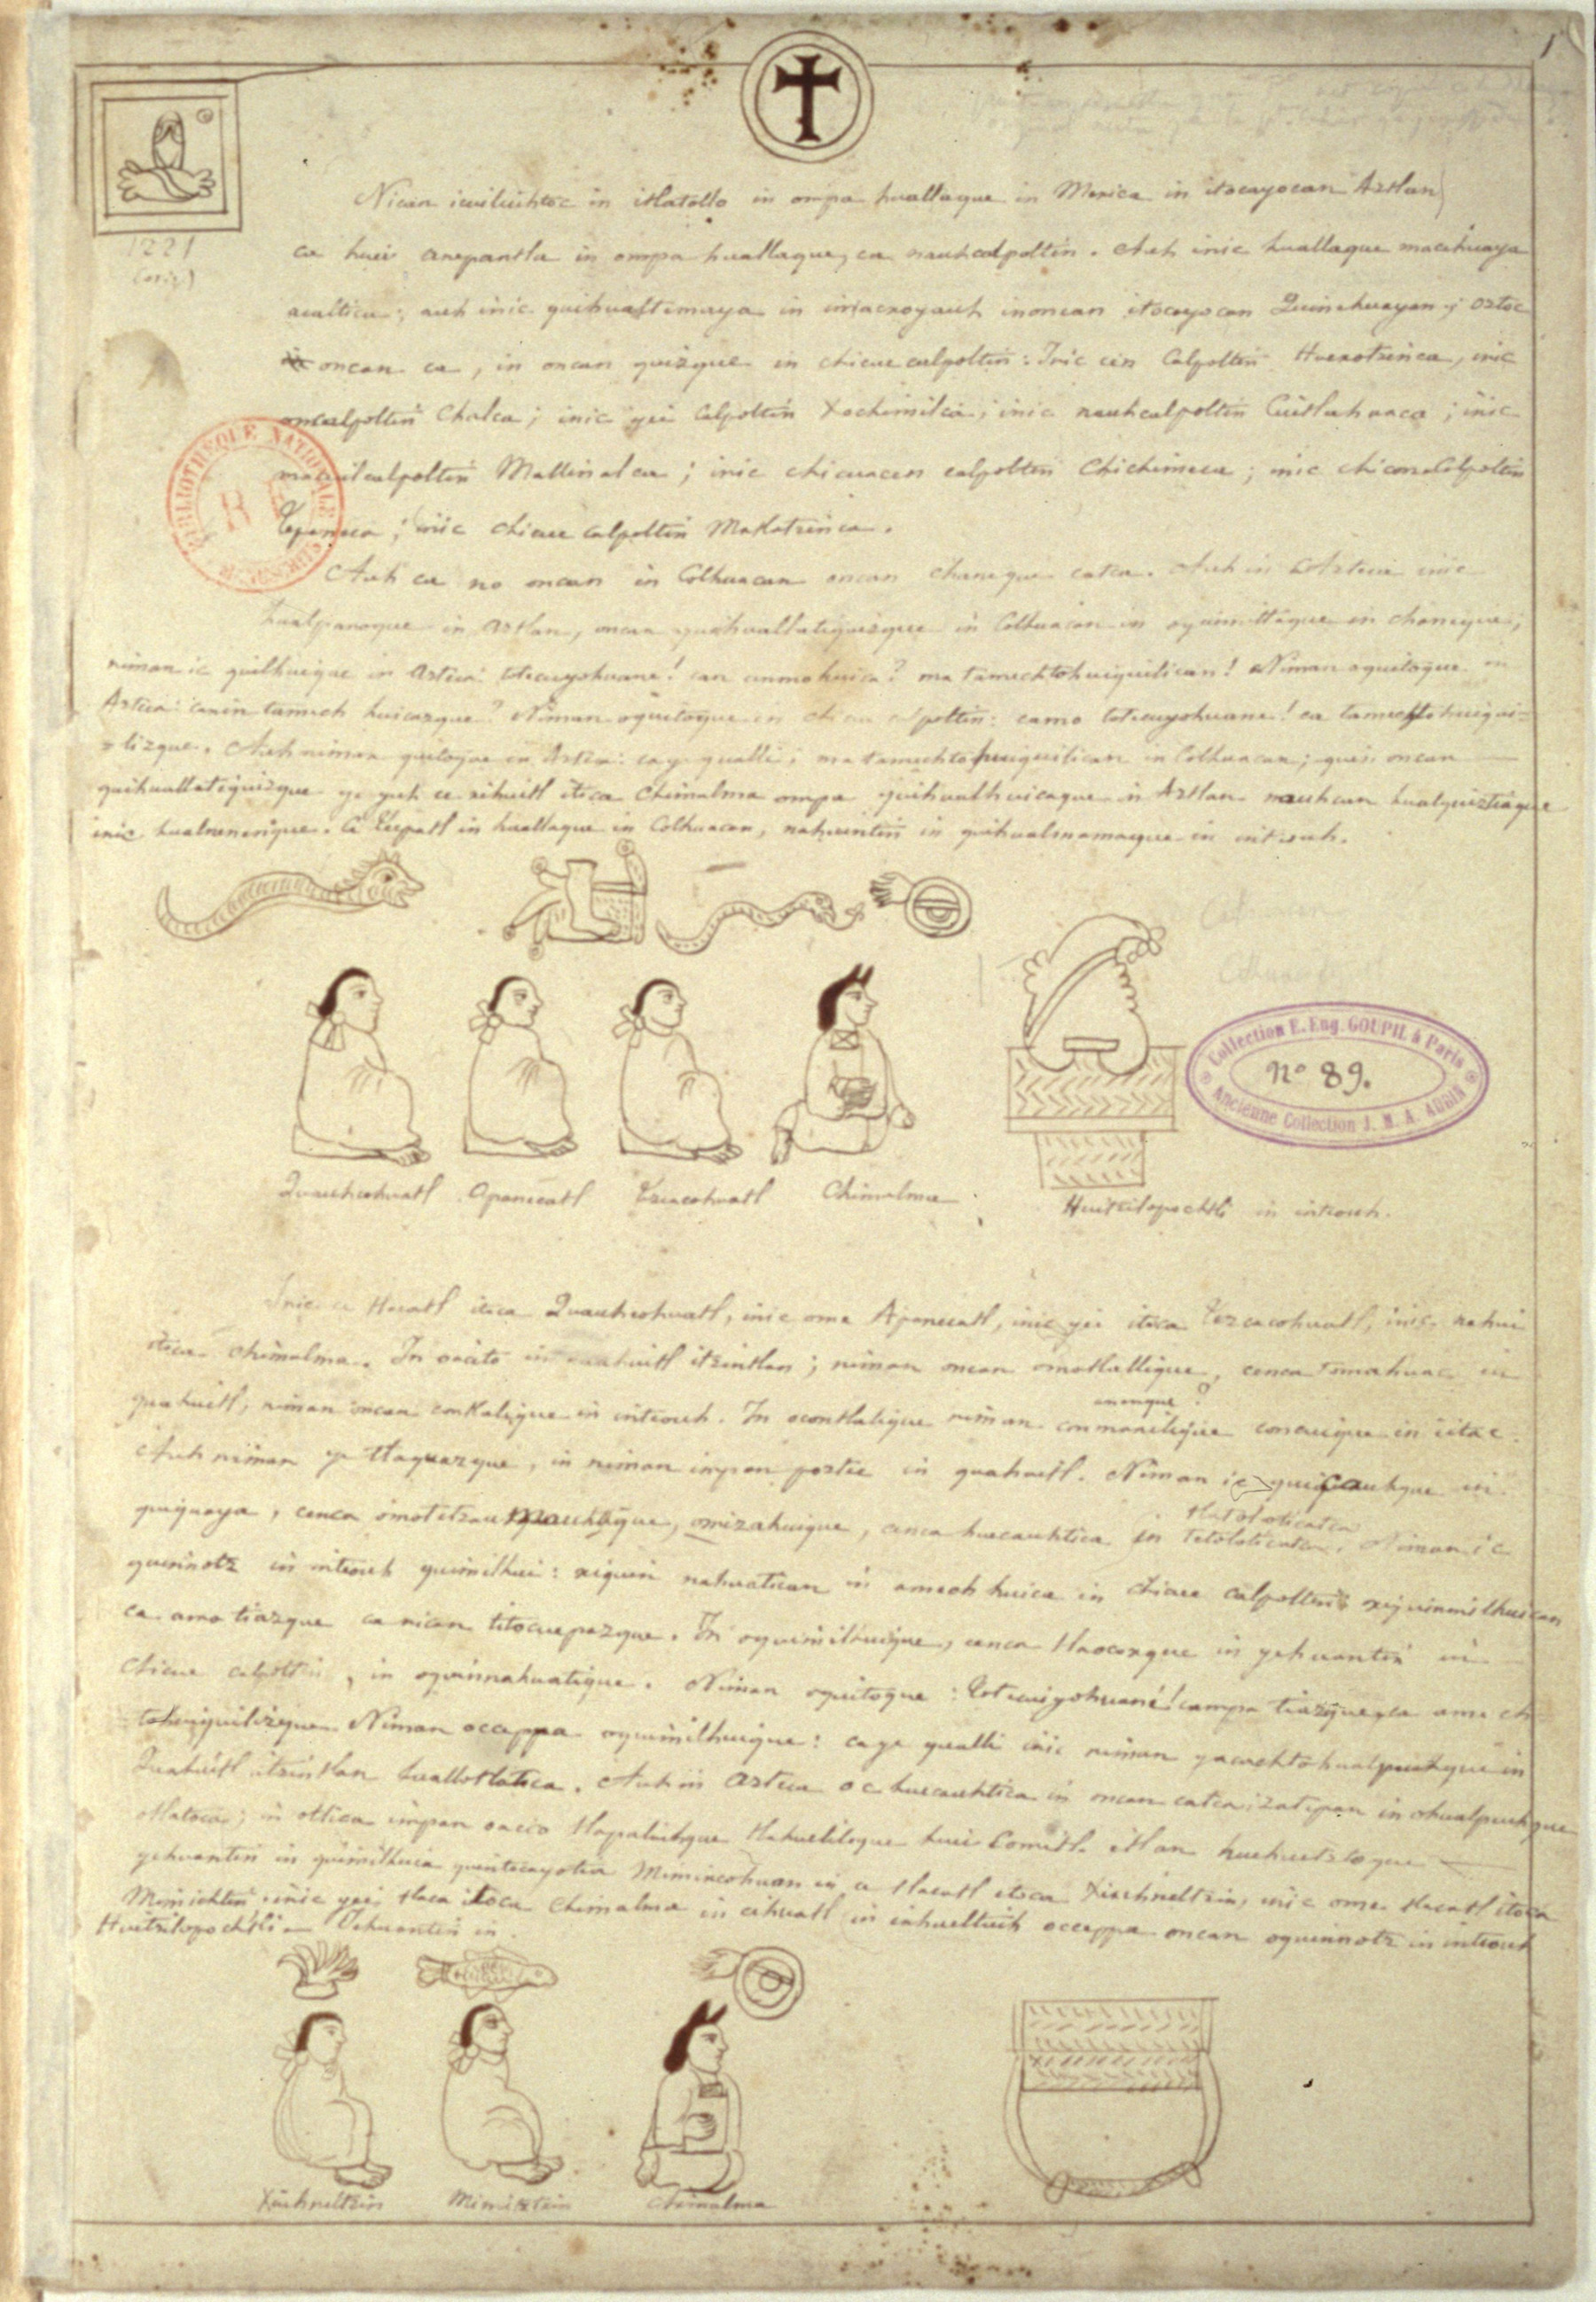 1
Nican icuiliuhtoc in itlatollo in ompa huallaque in Mexica in itocayocan Aztlan
ca huei anepantla in ompa huallaque, ca nauhcalpoltin. Auh inic huallaque macehuaya
acaltica; auh inic quihualtemaya in imacxoyauh inoncan itocayocan Quinehuayan y oztoc
oncan ca, in oncan quizque in chicue calpoltin: Inic cen Calpoltin Huexotzinca, inic
oncalpoltin Chalca; inic yei Calpoltin Xochimilca; inic nauhcalpoltin Cuitlahuaca; inic
macuilcalpoltin Mallinalca; inic chicuacen calpoltin Chichimeca; inic chiconcalpoltin
Tepaneca; inic chicue calpoltin Matlatzinca.
Auh ca no oncan in Colhuacan oncan chaneque catca. Auh in Azteca inic
hualpanoque in Aztlan, oncan quihuallatiquizque in Colhuacan in oquimittaque in chaneque,
niman ic quilhuique in Azteca: totecuyohuane! can anmohuica? ma tamechtohuiquilican! Niman oquitoque in
Azteca: canin tamech huicazque? Niman oquitoque in chicue calpoltin: camo totecuyohuane! ca tamechtohuiqui=
=lizque. Auh niman quitoque in Azteca: ca ye qualli; ma tamechtohuiquilican in Colhuacan; quin oncan
quihuallatiquizque ye yuh ce xihuitl itoca Chimalma ompa quihualhuicaque in Aztlan nauhcan hualquiztiaque
inic hualnenenque. Ce Tecpatl in huallaque in Colhuacan, nahuintin in quihualmamaque in inteouh.
Quauhcohuatl Apanecatl Tezcacohuatl Chimalma
Huitzilopochtli in inteouh.
Collection E. Eug. GOUPIL à Paris
nº 89.
Ancienne Collection J. M. A. AUBIN
BIBLIOTHÈQUE NATIONALE
Inic ce tlacatl itoca Quauhcohuatl, inic ome Apanecatl, inic yei itoca Tezcacohuatl, inic nahui
itoca Chimalma. In oacito in quahuitl itzintlan; niman oncan omotlallique, cenca tomahuac in
quahuitl, niman oncan contlalique in inteouh. In ocontlalique niman conmanilique concuique in iitac.
Auh niman ye tlaquazque, in niman impan poztec in quahuitl. Niman ic quicauhque in
quiquaya, cenca omotetzauhmauhtique, omizahuique, cenca huecauhtica in tetoloticatca. Niman ic
quinnotz in inteouh quimilhui: xiquin nahuatican in amech huica in chicue calpoltin xiquimilhuican
ca amo tiazque ca nican titocuepazque. In oquimilhuique, cenca tlaocoxque in yehuantin in
chicue calpoltin, in oquinnahuatique. Niman oquitoque: totecuiyohuané! campa tiazque, ca amech
tohuiquilizque. Niman occeppa oquimilhuique: ca ye qualli inic niman yacachto hualpeuhque in
Quahuitl itzintlan huallotlatoca. Auh in Azteca oc huecauhtica in oncan catca; zatepan in ohualpeuhque
otlatoca; in ottica impan oacico tlapalicihque tlahueliloque huei Comitl itlan huehuetztoque
yehuantin in quimilhuia quintocayotia Mimixcohuan in ce tlacatl itoca Xiuhneltzin, inic ome tlacatl itoca
Mimichtin, inic yei tlaca itoca Chimalma in cihuatl in inhueltiuh occeppa oncan oquinnotz in inteouh
Huitzilopochtli Yehuantin in.
Xiuhneltzin Mimitzin Chimalma